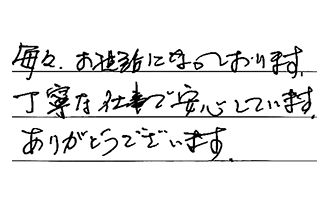 毎々、お世話になっております。
丁寧な仕事で安心しています。
ありがとうでざいます。